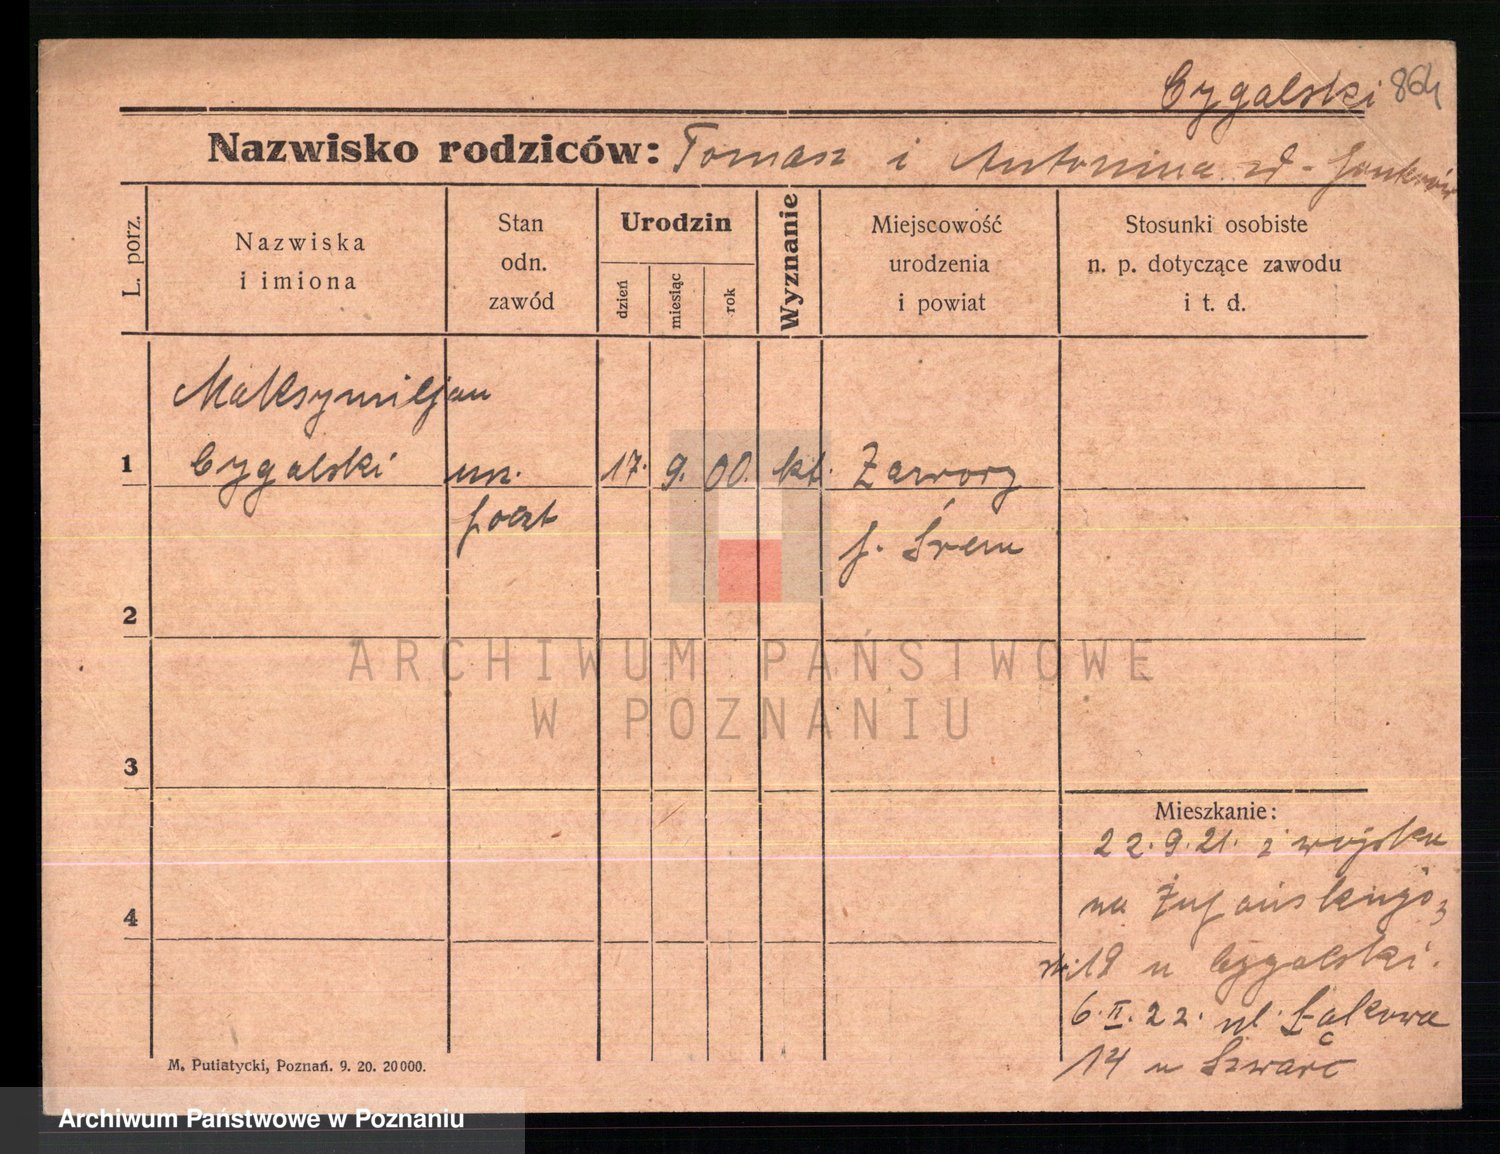 Cygalski 864
Nazwisko rodziców: Tomasz i Antonina zd.
L. porz.
Nazwiska
i imiona
Stan
odn.
zawód
Urodzin
dzień
miesiąc
rok
Wyznanie
Miejscowość
urodzenia
i powiat
Stosunki osobiste
n. p. dotyczące zawodu
i t. d.
Maksymiljan
1 Cygalski urz. 17. 9. 00. kt. Zawory
poczt
p. Śrem
2
ARCHIWUM PAŃSTWOWE
W POZNANIU
3
Mieszkanie:
22.9.21. z wojska
na
4
nr. 19 u Cygalski.
6.II.22. ul. Łąkowa
14 u Szwarc
M. Putiatycki, Poznań. 9. 20. 20000.
Archiwum Państwowe w Poznaniu